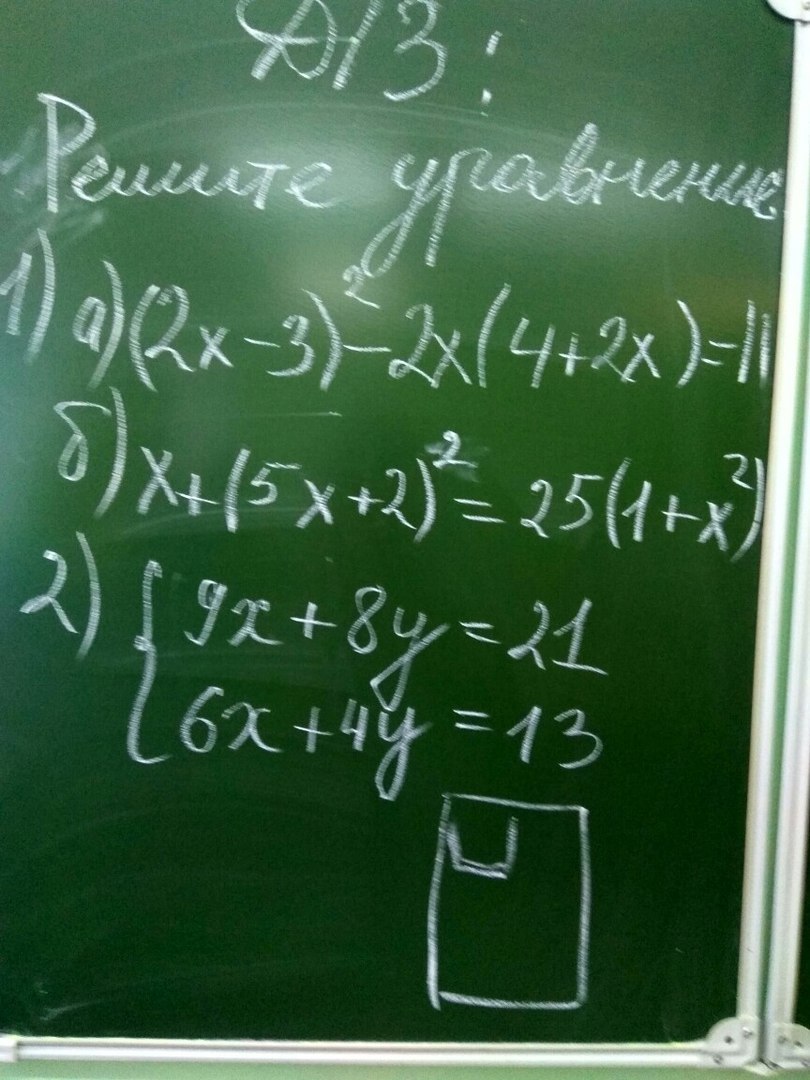 Д/З:
Решите уравнение
1) а) (2x-3)²-2x(4+2x)=11
б) x+(5x+2)²=25(1+x²)
2) { 9x+8y=21
6x+4y=13